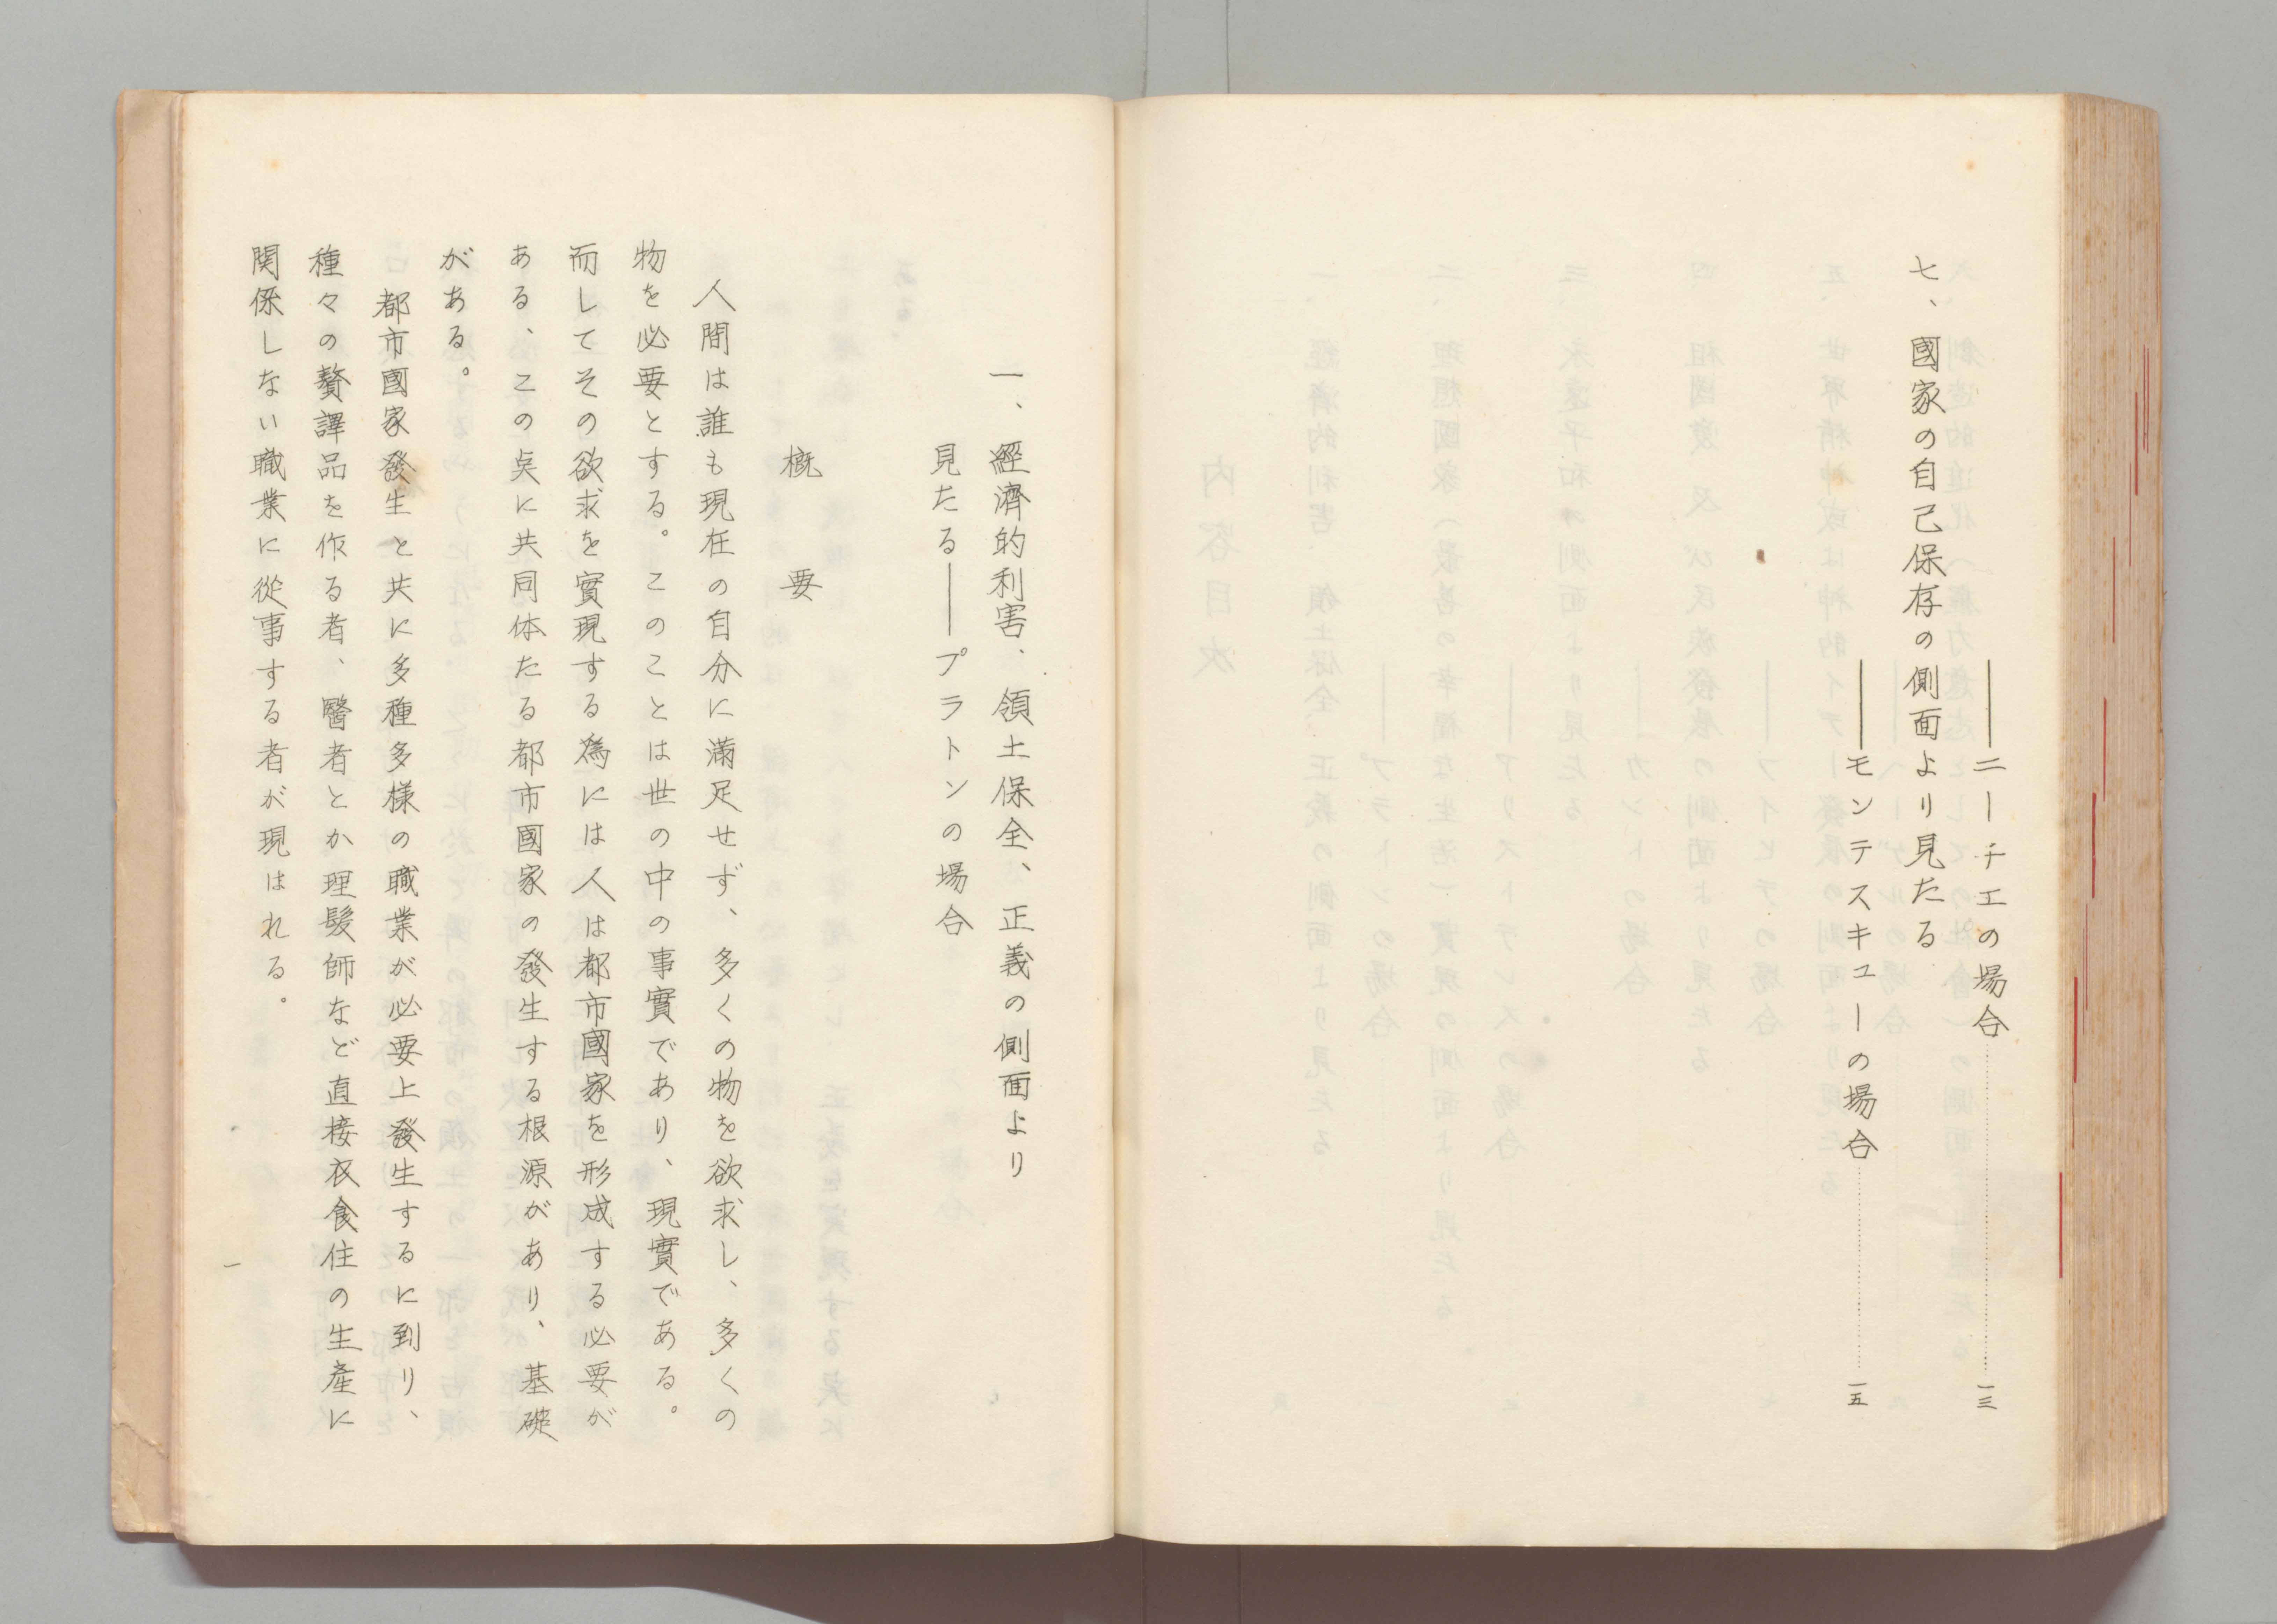 ――ニーチエの場合……………一三
七、國家の自己保存の側面より見たる
――モンテスキユーの場合……………一五
一、經濟的利害、領土保全、正義の側面より
見たる――プラトンの場合
概　要
人間は誰も現在の自分に滿足せず、多くの物を欲求し、多くの
物を必要とする。このことは世の中の事實であり、現實である。
而してその欲求を實現する為には人は都市國家を形成する必要が
ある、この奌に共同体たる都市國家の發生する根源があり、基礎
がある。
都市國家發生と共に多種多様の職業が必要上發生するに到り、
種々の贅譯品を作る者、醫者とか理髮師など直接衣食住の生産に
関係しない職業に從事する者が現はれる。
一